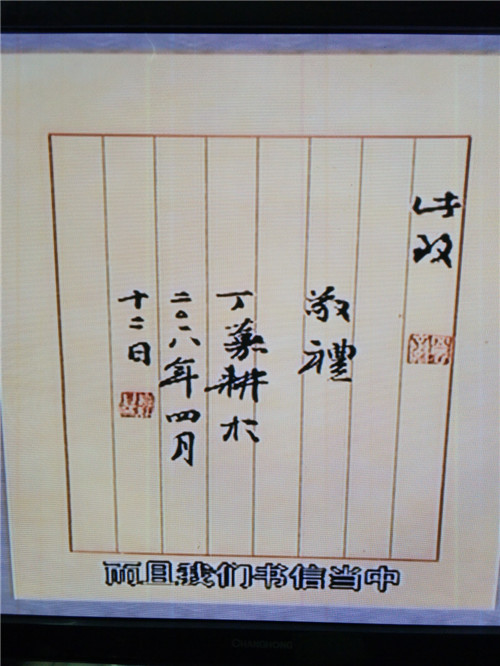 此致
敬禮
丁慕耕於
二〇一八年四月
十二日
而且我们书信当中
CHANGHONG